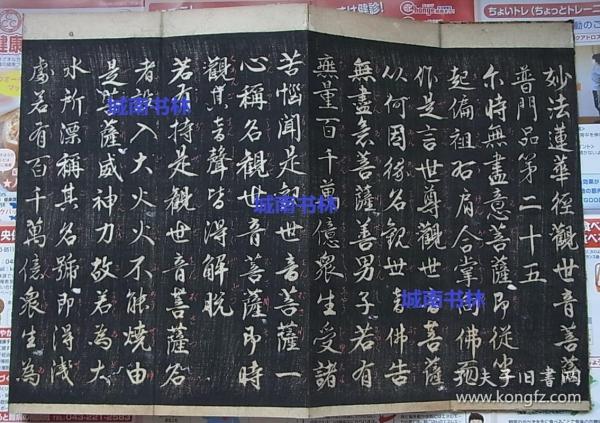 妙法蓮華經觀世音菩薩
普門品第二十五
尒時無盡意菩薩即從坐
起偏袒右肩合掌向佛而
作是言世尊觀世音菩薩
以何因緣名觀世音佛告
無盡意菩薩善男子若有
無量百千萬億衆生受諸
苦惱聞是觀世音菩薩一
心稱名觀世音菩薩即時
觀其音聲皆得解脱
若有持是觀世音菩薩名
者設入大火火不能燒由
是菩薩威神力故若為大
水所漂稱其名號即得浅
處若有百千萬億衆生為
城南书林
城南书林
城南书林
夫子旧書
www.kongfz.com
ちょいトレ（ちょっとトレーニ
043-221-2583